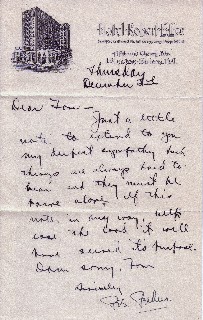 Thursday
December 2nd
Dear Tom -
Just a little
note to extend to you
my deepest sympathy. Such
things are always hard to
bear and they must be
borne alone. If this
note in any way, helps
ease the load it will
have served its purpose.
Am sorry, Tom
Sincerely